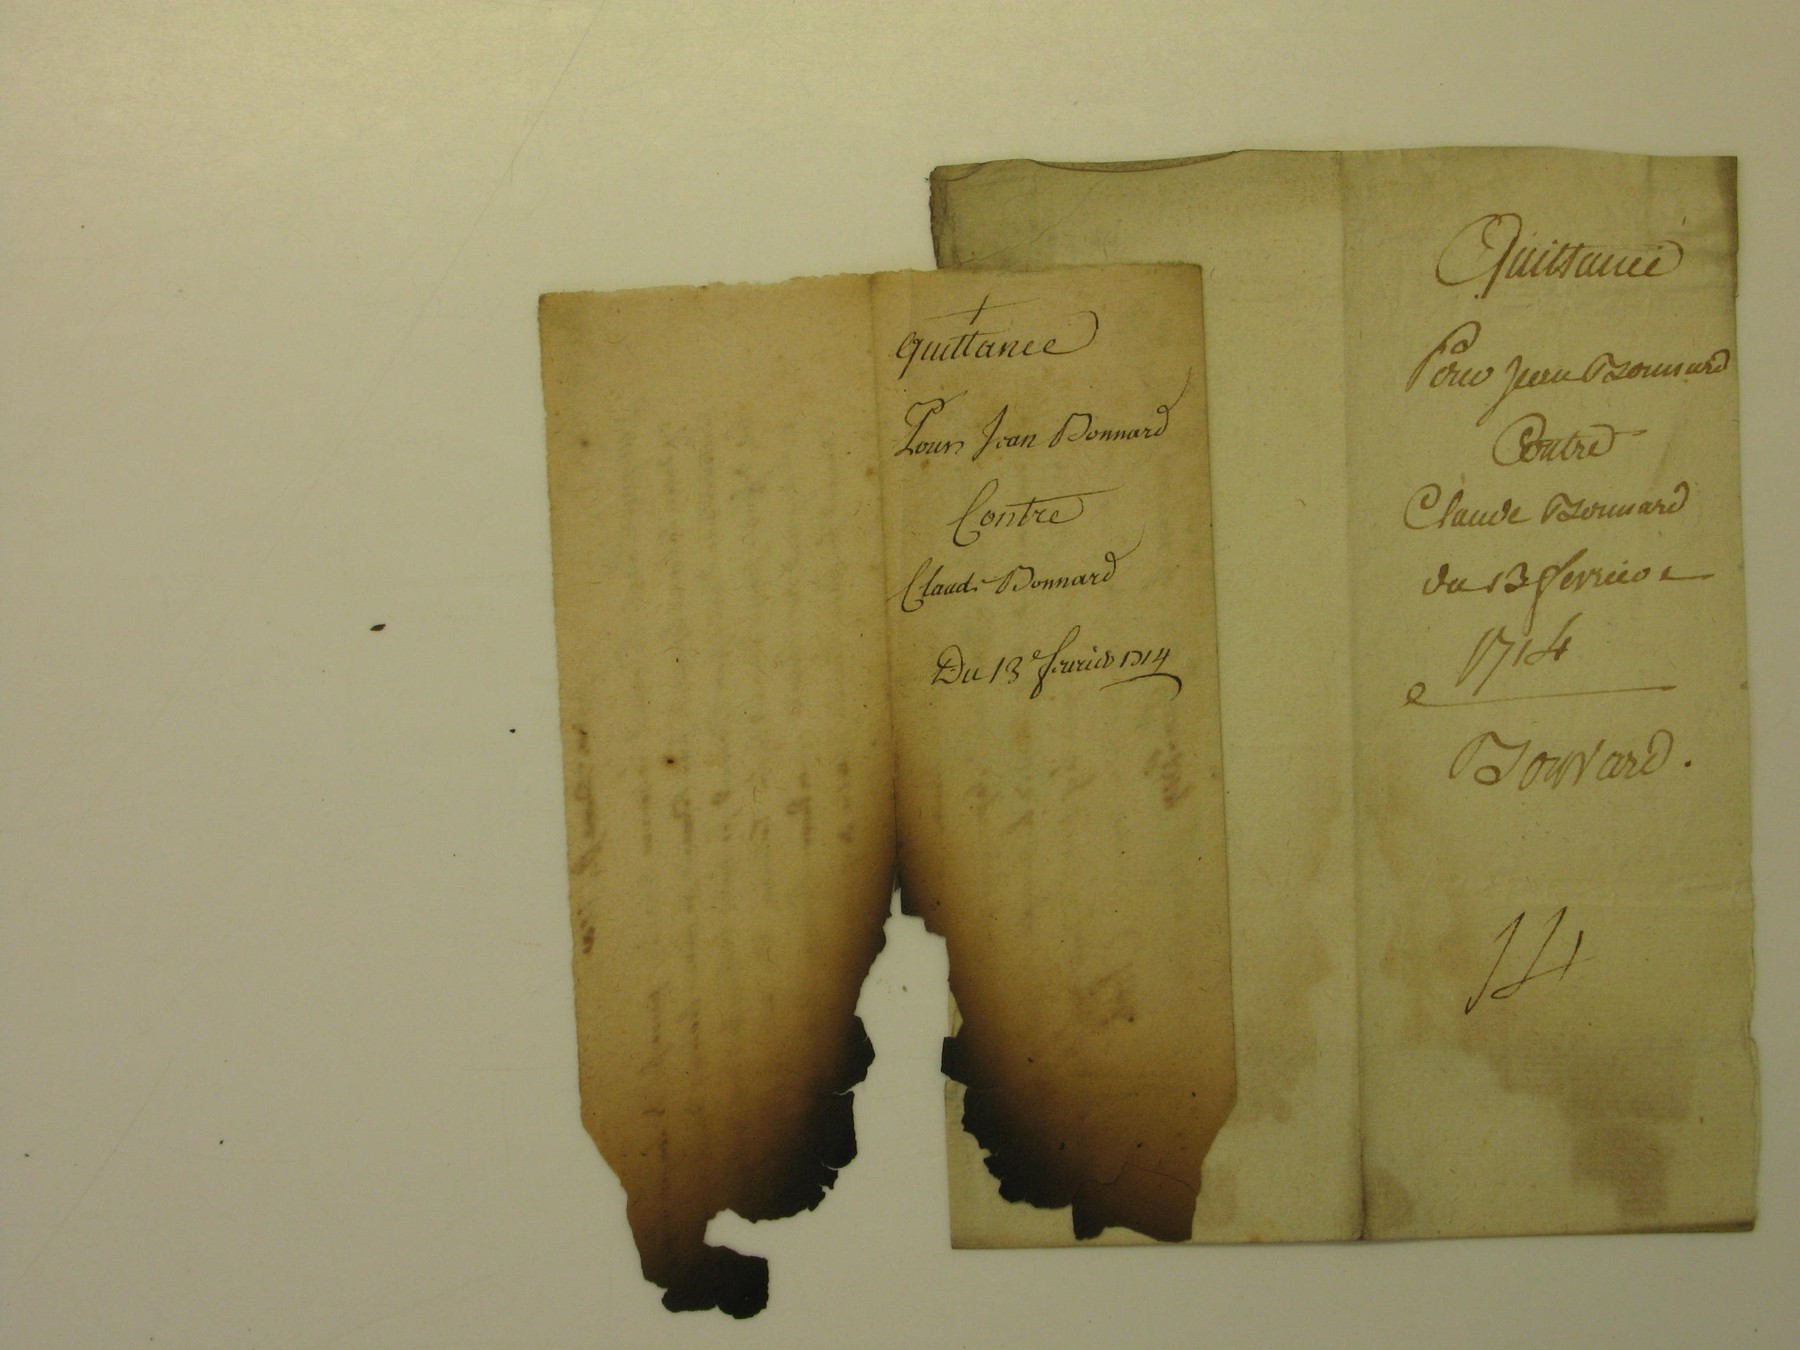 quittance
Pour Jean Bonnard
Contre
Claude Bonnard
Du 13e fevrier 1714
Quittance
Pour Jean Bonnard
Contre
Claude Bonnard
du 13 fevrier
1714
Bonnard.
14